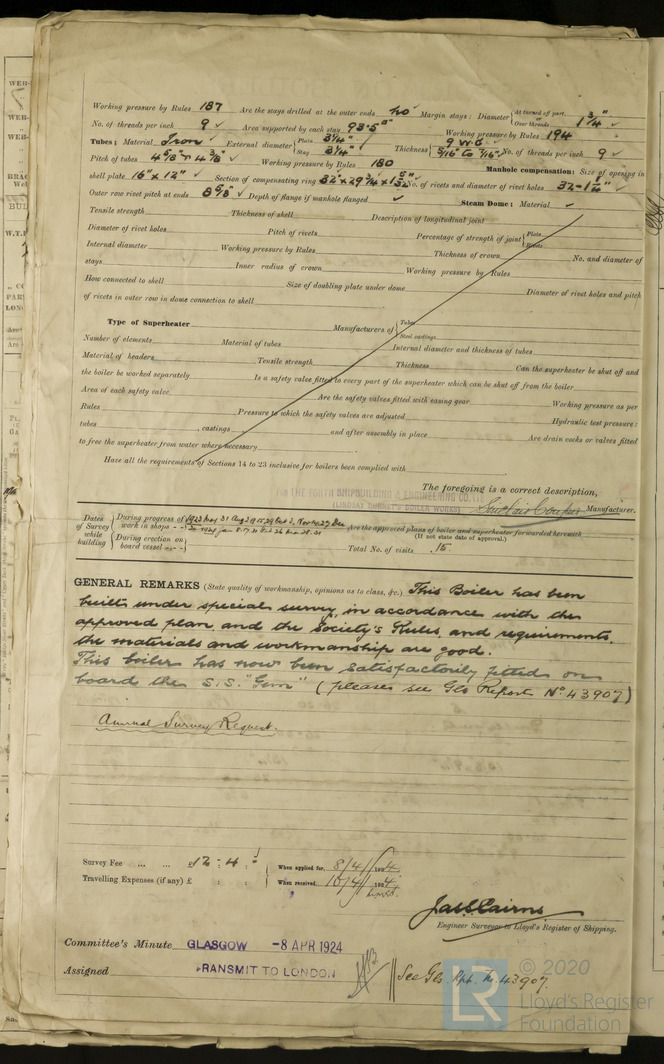 Working pressure by Rules 187 Are the stays drilled at the outer ends No Margin stays: Diameter { At turned off part, or Over threads 1 3/4"
No. of threads per inch 9 ✓ Area supported by each stay 93.5 Working pressure by Rules 194
Tubes: Material Iron ✓ External diameter { Plain 3 1/4" Stay 3 1/4" Thickness { 9 W.G. 5/16" to 7/16" No. of threads per inch 9 ✓
Pitch of tubes 4 5/8" × 4 3/8" ✓ Working pressure by Rules 180 Manhole compensation: Size of opening in
shell plate 16" × 12" ✓ Section of compensating ring No. of rivets and diameter of rivet holes
Outer row rivet pitch at ends Depth of flange if manhole flanged ✓ Steam Dome: Material ✓
Tensile strength Thickness of shell Description of longitudinal joint
Diameter of rivet holes Pitch of rivets Percentage of strength of joint { Plate Rivets
Internal diameter Working pressure by Rules Thickness of crown No. and diameter of
stays Inner radius of crown Working pressure by Rules
How connected to shell Size of doubling plate under dome Diameter of rivet holes and pitch
of rivets in outer row in dome connection to shell
Type of Superheater Manufacturers of { Tubes Steel castings
Number of elements Material of tubes Internal diameter and thickness of tubes
Material of headers Tensile strength Thickness Can the superheater be shut off and
the boiler be worked separately Is a safety valve fitted to every part of the superheater which can be shut off from the boiler
Area of each safety valve Are the safety valves fitted with easing gear Working pressure as per
Rules Pressure to which the safety valves are adjusted Hydraulic test pressure:
tubes , castings and after assembly in place Are drain cocks or valves fitted
to free the superheater from water where necessary
Have all the requirements of Sections 14 to 23 inclusive for boilers been complied with
The foregoing is a correct description,
FOR THE FORTH SHIPBUILDING & ENGINEERING CO. LTD
(LINDSAY BURNET'S BOILER WORKS) Manufacturer.
Dates of Survey while building { During progress of work in shops - - Are the approved plans of boiler and superheater forwarded herewith
(If not state date of approval.)
During erection on board vessel - - - Total No. of visits 15.
GENERAL REMARKS (State quality of workmanship, opinions as to class, &c.) This Boiler has been
built under special survey, in accordance with the
approved plan, and the Society's Rules, and requirements,
the materials and workmanship are good.
This boiler has now been satisfactorily fitted on
board the S.S. "Gem" (please see Gls Report No. 43907)
Annual Survey Request.
Survey Fee ... ... £12 : 4 : When applied for, 8/4/1924.
Travelling Expenses (if any) £ : : When received, 10/4/1924
Jas S Cairns
Engineer Surveyor to Lloyd's Register of Shipping.
Committee's Minute GLASGOW -8 APR 1924
Assigned TRANSMIT TO LONDON
See Gls. Rpt. No. 43907.
© 2020
LR
Lloyd's Register
Foundation